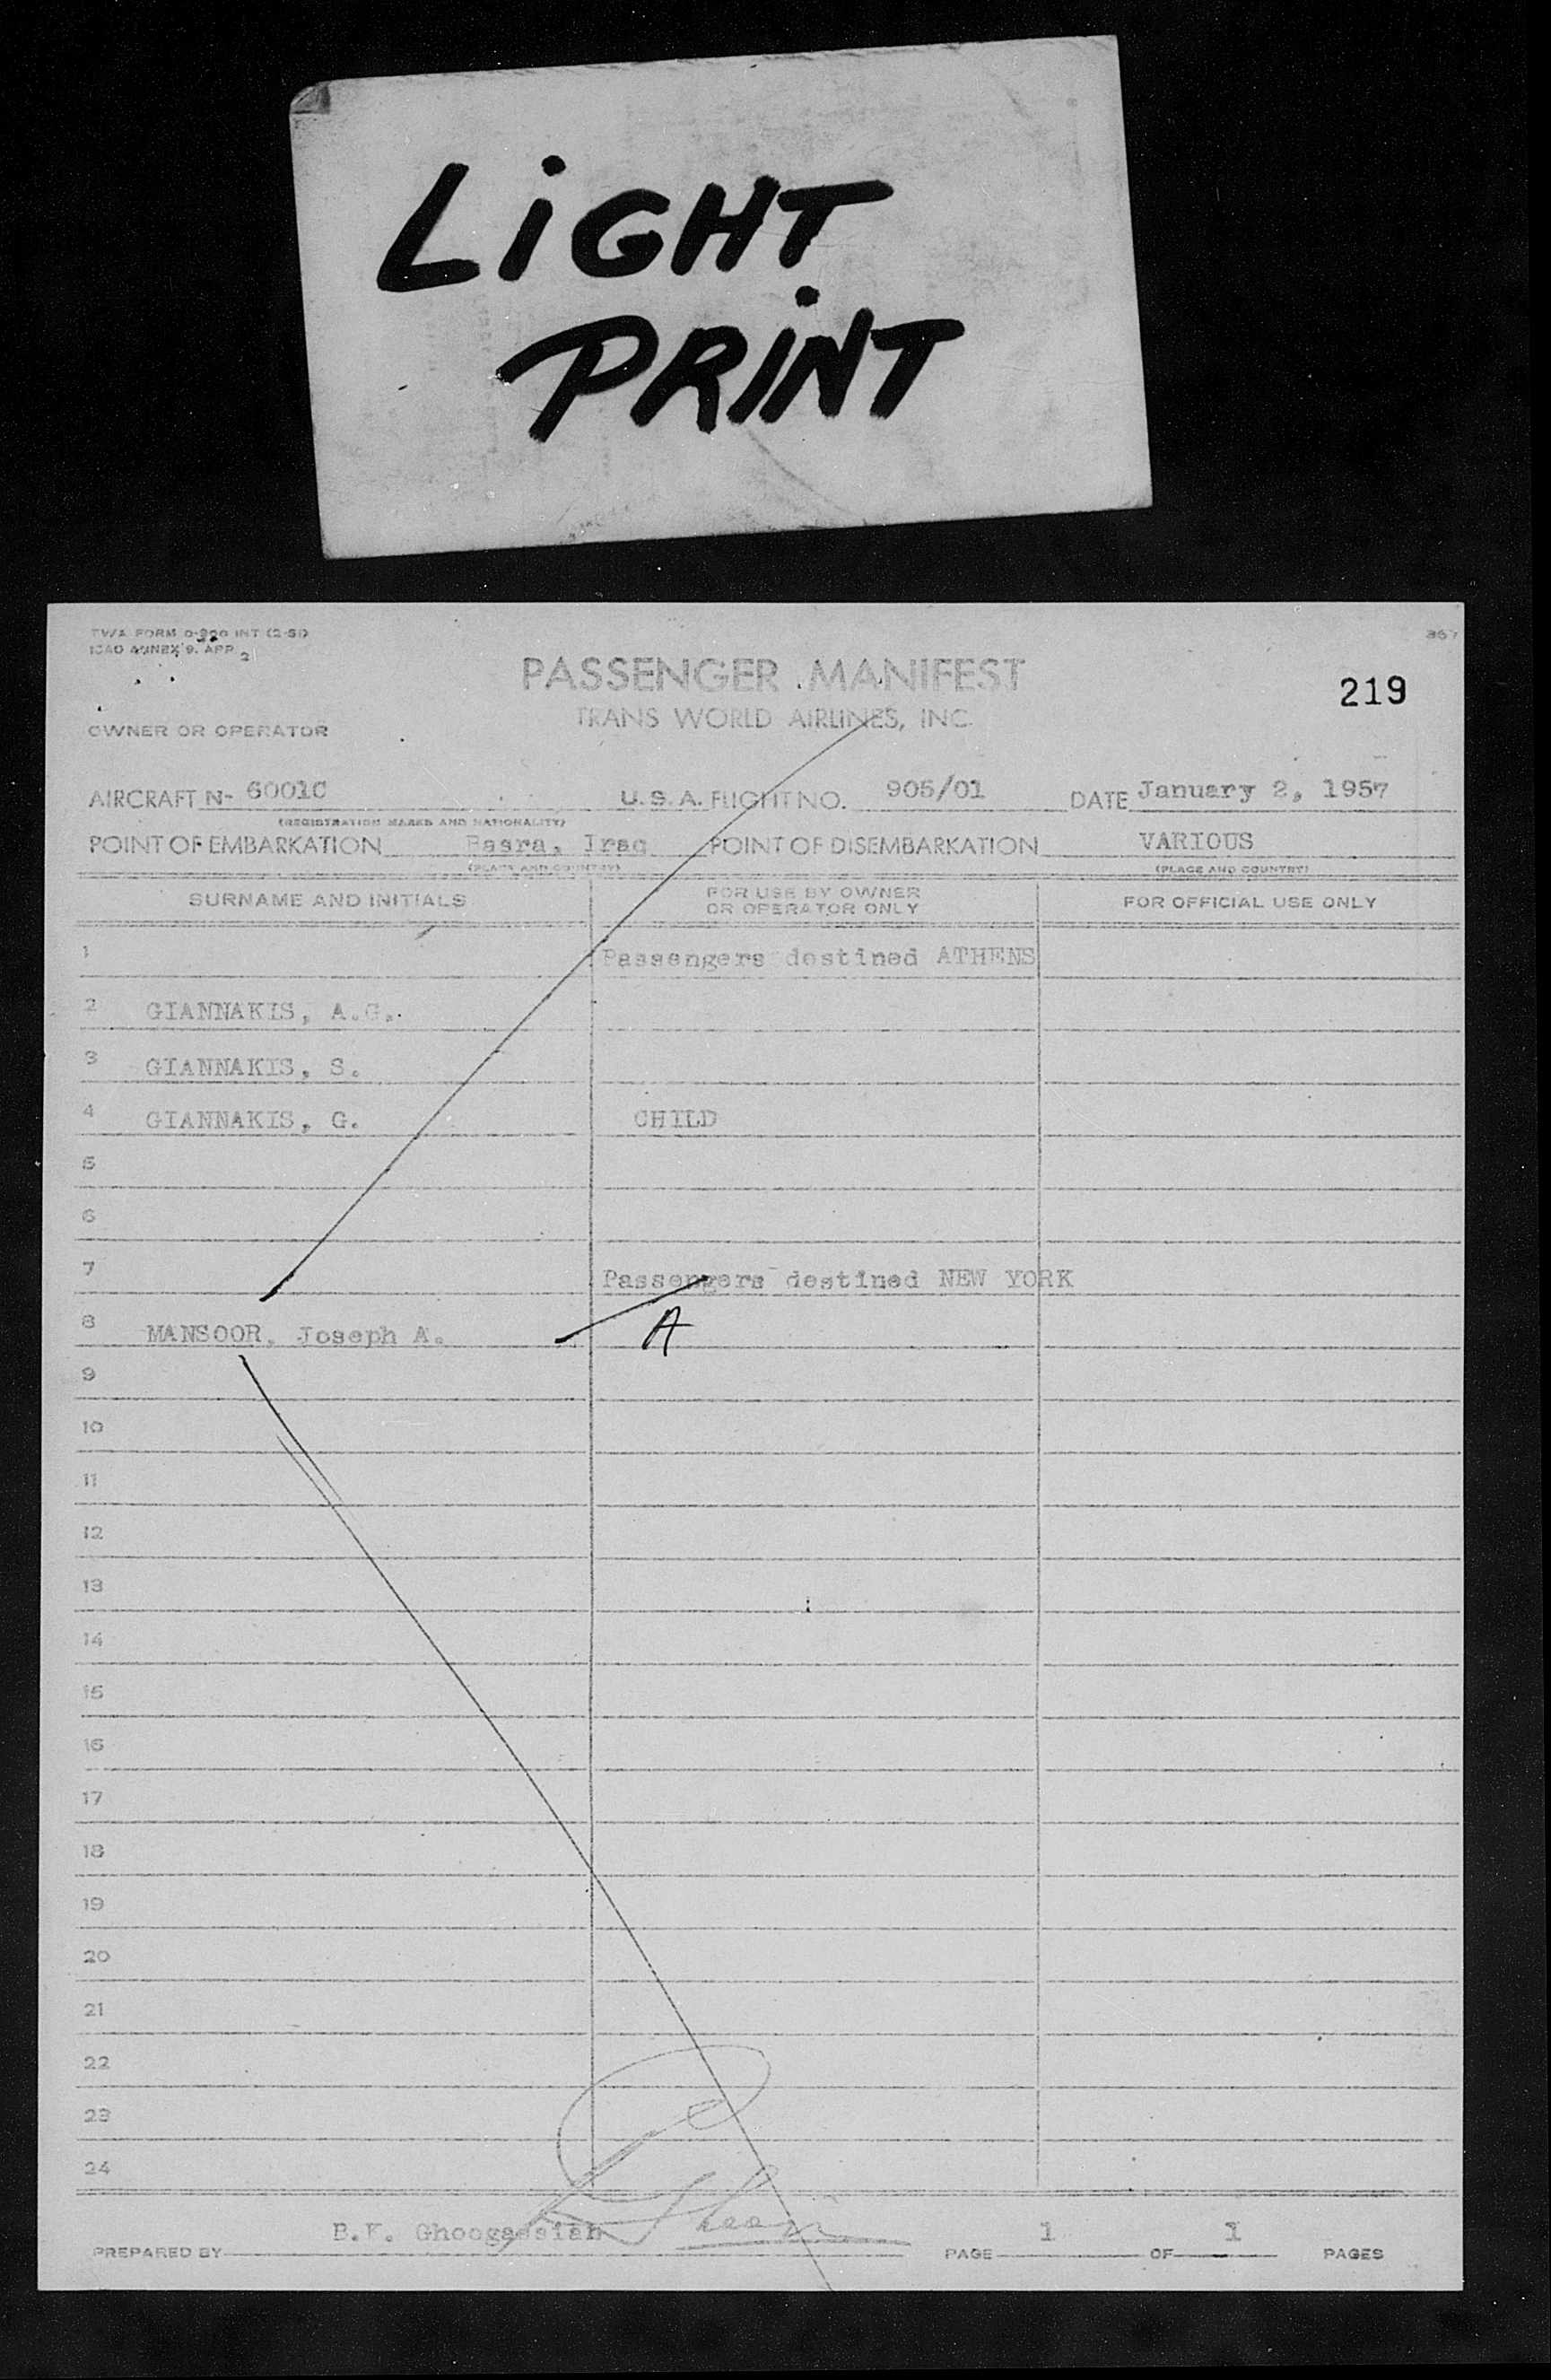 LiGHT
PRiNT
TWA FORM 0-900 INT (2-51)
ICAO ANNEX 9. APP. 2
367
PASSENGER MANIFEST
219
TRANS WORLD AIRLINES, INC.
OWNER OR OPERATOR
AIRCRAFT N- 6001C U.S.A. FLIGHT NO. 905/01 DATE January 2, 1957
(REGISTRATION MARKS AND NATIONALITY)
POINT OF EMBARKATION Basra, Iraq POINT OF DISEMBARKATION VARIOUS
(PLACE AND COUNTRY) (PLACE AND COUNTRY)
SURNAME AND INITIALS FOR USE BY OWNER OR OPERATOR ONLY FOR OFFICIAL USE ONLY
1 Passengers destined ATHENS
2 GIANNAKIS, A.G.
3 GIANNAKIS, S.
4 GIANNAKIS, G. CHILD
5
6
7 Passengers destined NEW YORK
8 MANSOOR, Joseph A. A
9
10
11
12
13
14
15
16
17
18
19
20
21
22
23
24
PREPARED BY B.K. Ghoogassian PAGE 1 OF 1 PAGES